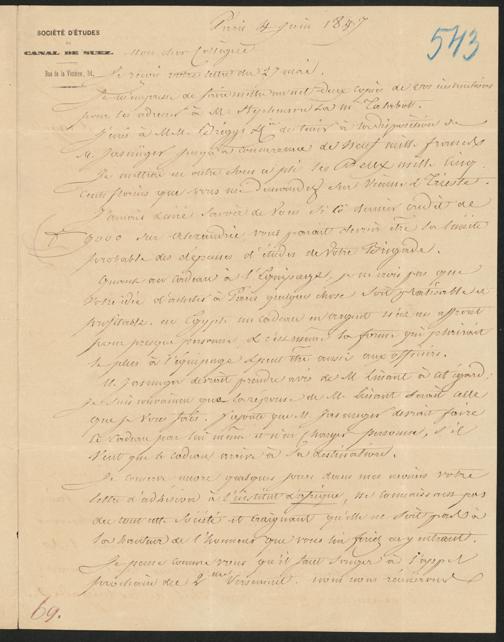 SOCIÉTÉ D'ÉTUDES
DU
CANAL DE SUEZ.
Rue de la Victoire, 34.
Paris 4 Juin 1847
543
Mon cher Collègue
Je reçois votre lettre du 27 mai.
Je m'empresse de faire mettre au net deux copies de vos instructions
pour les adresser à M. Stephenson et à Mr Talabot.
J'écris à MM. de tenir à la disposition de
M. Jasniger jusqu'à concurrence de Neuf mille francs
Je mettrai en outre sous ce pli les deux mille cinq
cents florins que vous me demandez sur Vienne & Trieste.
J'aurais désiré savoir de vous si ce dernier crédit de
9000 sur Alexandrie vous paraît devoir être la limite
probable des dépenses d'études de votre Brigade.
Quant au cadeau à l'Équipage, je ne crois pas que
votre idée d'acheter à Paris quelque chose soit réalisable et
profitable. en Égypte un cadeau en argent n'est un affront
pour presque personne, & c'est même la forme qui plairait
le plus à l'équipage & peut être aussi aux officiers.
M. Jasniger devrait prendre avis de M. Linant à cet égard;
je suis convaincu que la réponse de M. Linant serait celle
que je vous fais. J'ajoute que M. Jasniger devrait faire
ce cadeau par lui même et n'en charger personne, s'il
veut que le cadeau arrive à sa destination.
Je conserve encore quelques jours dans mes mains votre
lettre d'adhésion à l'institut d'afrique, ne connaissant pas
du tout cette Société et craignant qu'elle ne soit pas à
la hauteur de l'honneur que vous lui feriez en y entrant.
Je pense comme vous qu'il faut songer à l'appel
prochain du 2me Versement. nous nous réunirons
69.